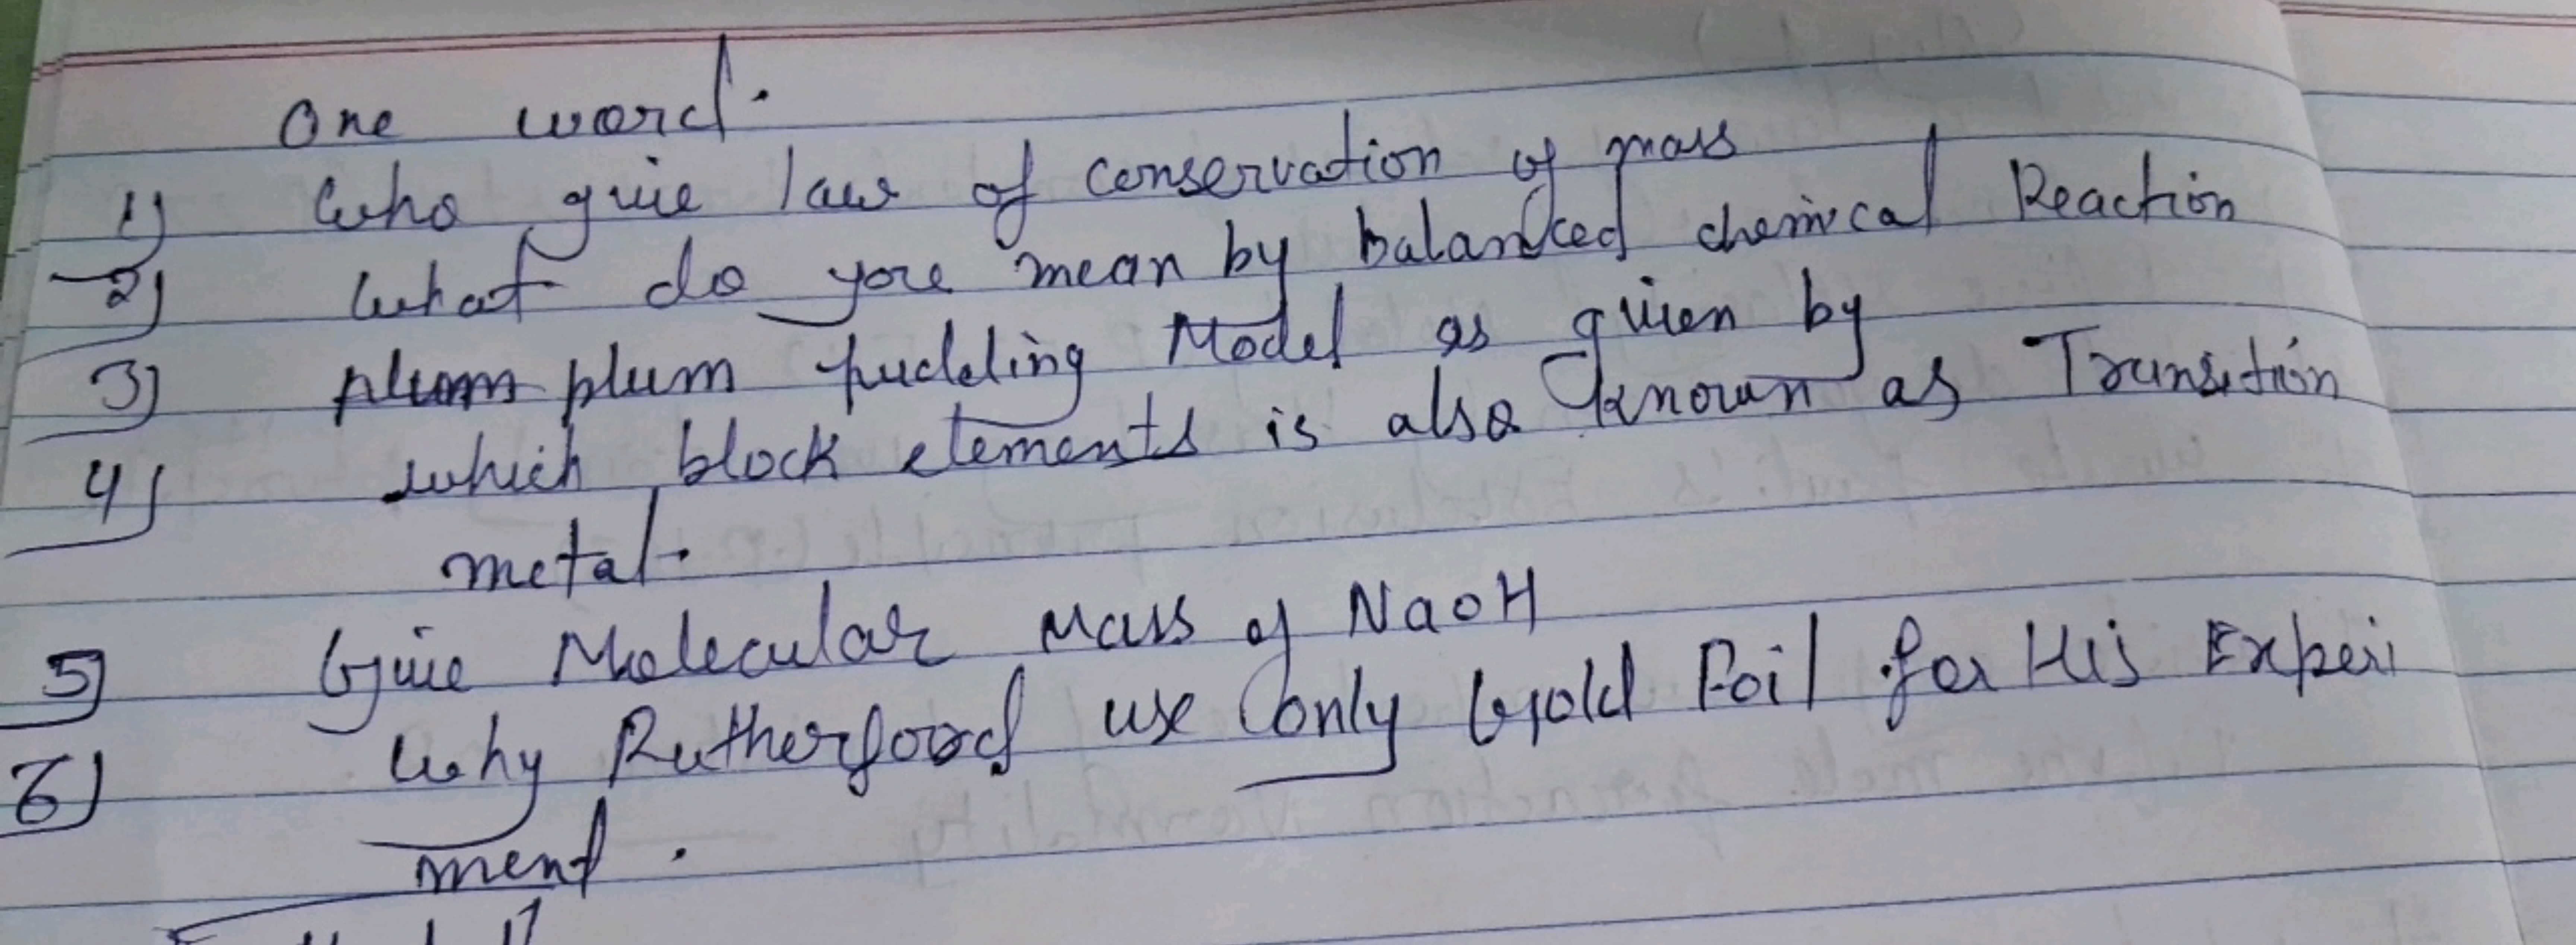 One word.
1) who give law of conservation of mass
2) What do you mean by balanced chemical Reaction
3) plum plum pudding Model as given by
4) which block elements is also known as Transition
metal.
5) Give Molecular Mass of NaOH
6) Why Rutherfoord use only Gold Foil for His Experi
ment.